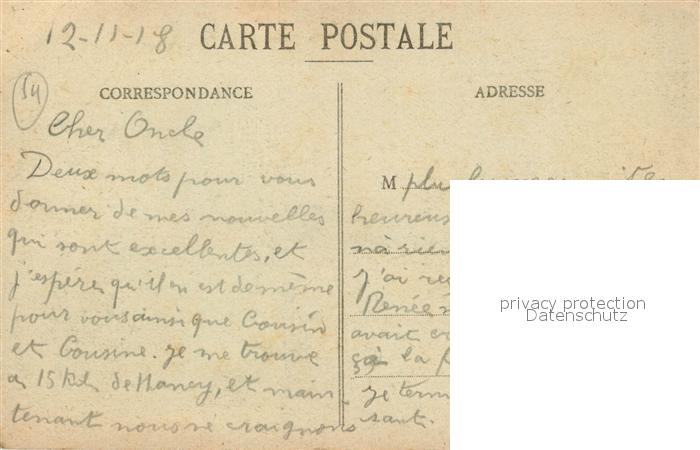 12-11-18 CARTE POSTALE
54
CORRESPONDANCE
Cher Oncle
Deux mots pour vous
donner de mes nouvelles
qui sont excellentes, et
j'espère qu'il en est de même
pour vous ainsi que Cousin
et Cousine. Je me trouve
a 15 Kil. de Nancy, et main
tenant nous ne craignons
ADRESSE
M plu
heureus
j'ai re
Renée
avait
ça à la
je term
sant.
privacy protection
Datenschutz